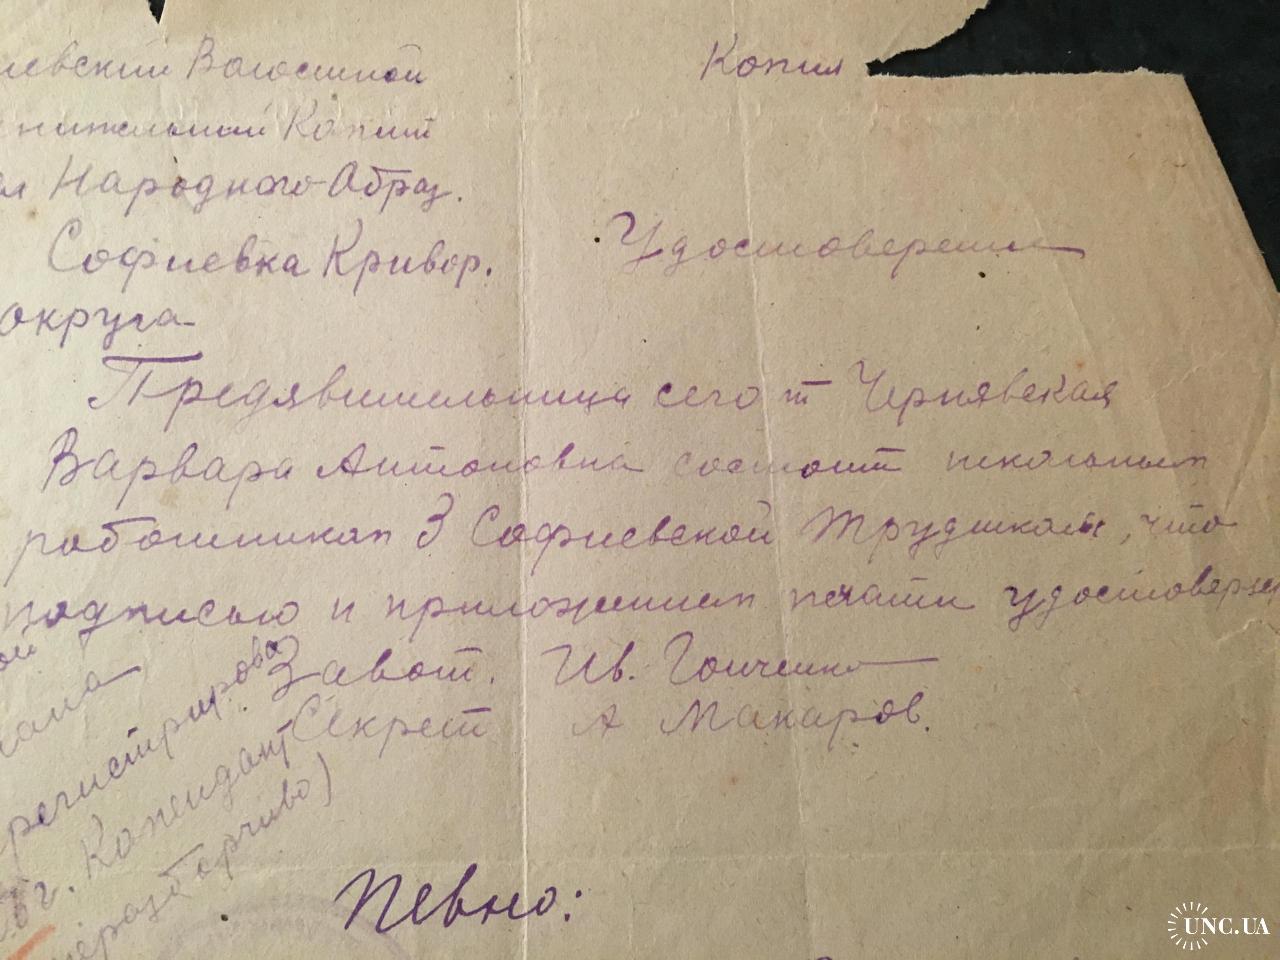 иевский Волостной
Копия
нительный Комит
Народного Образ.
Софиевка Кривор.
Удостоверение
округа
Предявительница сего т Чернявская
Варвара Антоновна состоит школьным
работником 3 Софиевской Трудшколы, что
подписью и приложением печати удостоверяет
Завот. Ив. Гонченко
Секрет А Макаров.
регистрирова
г. Комендант
неразборчиво)
Певно:
UNC.UA